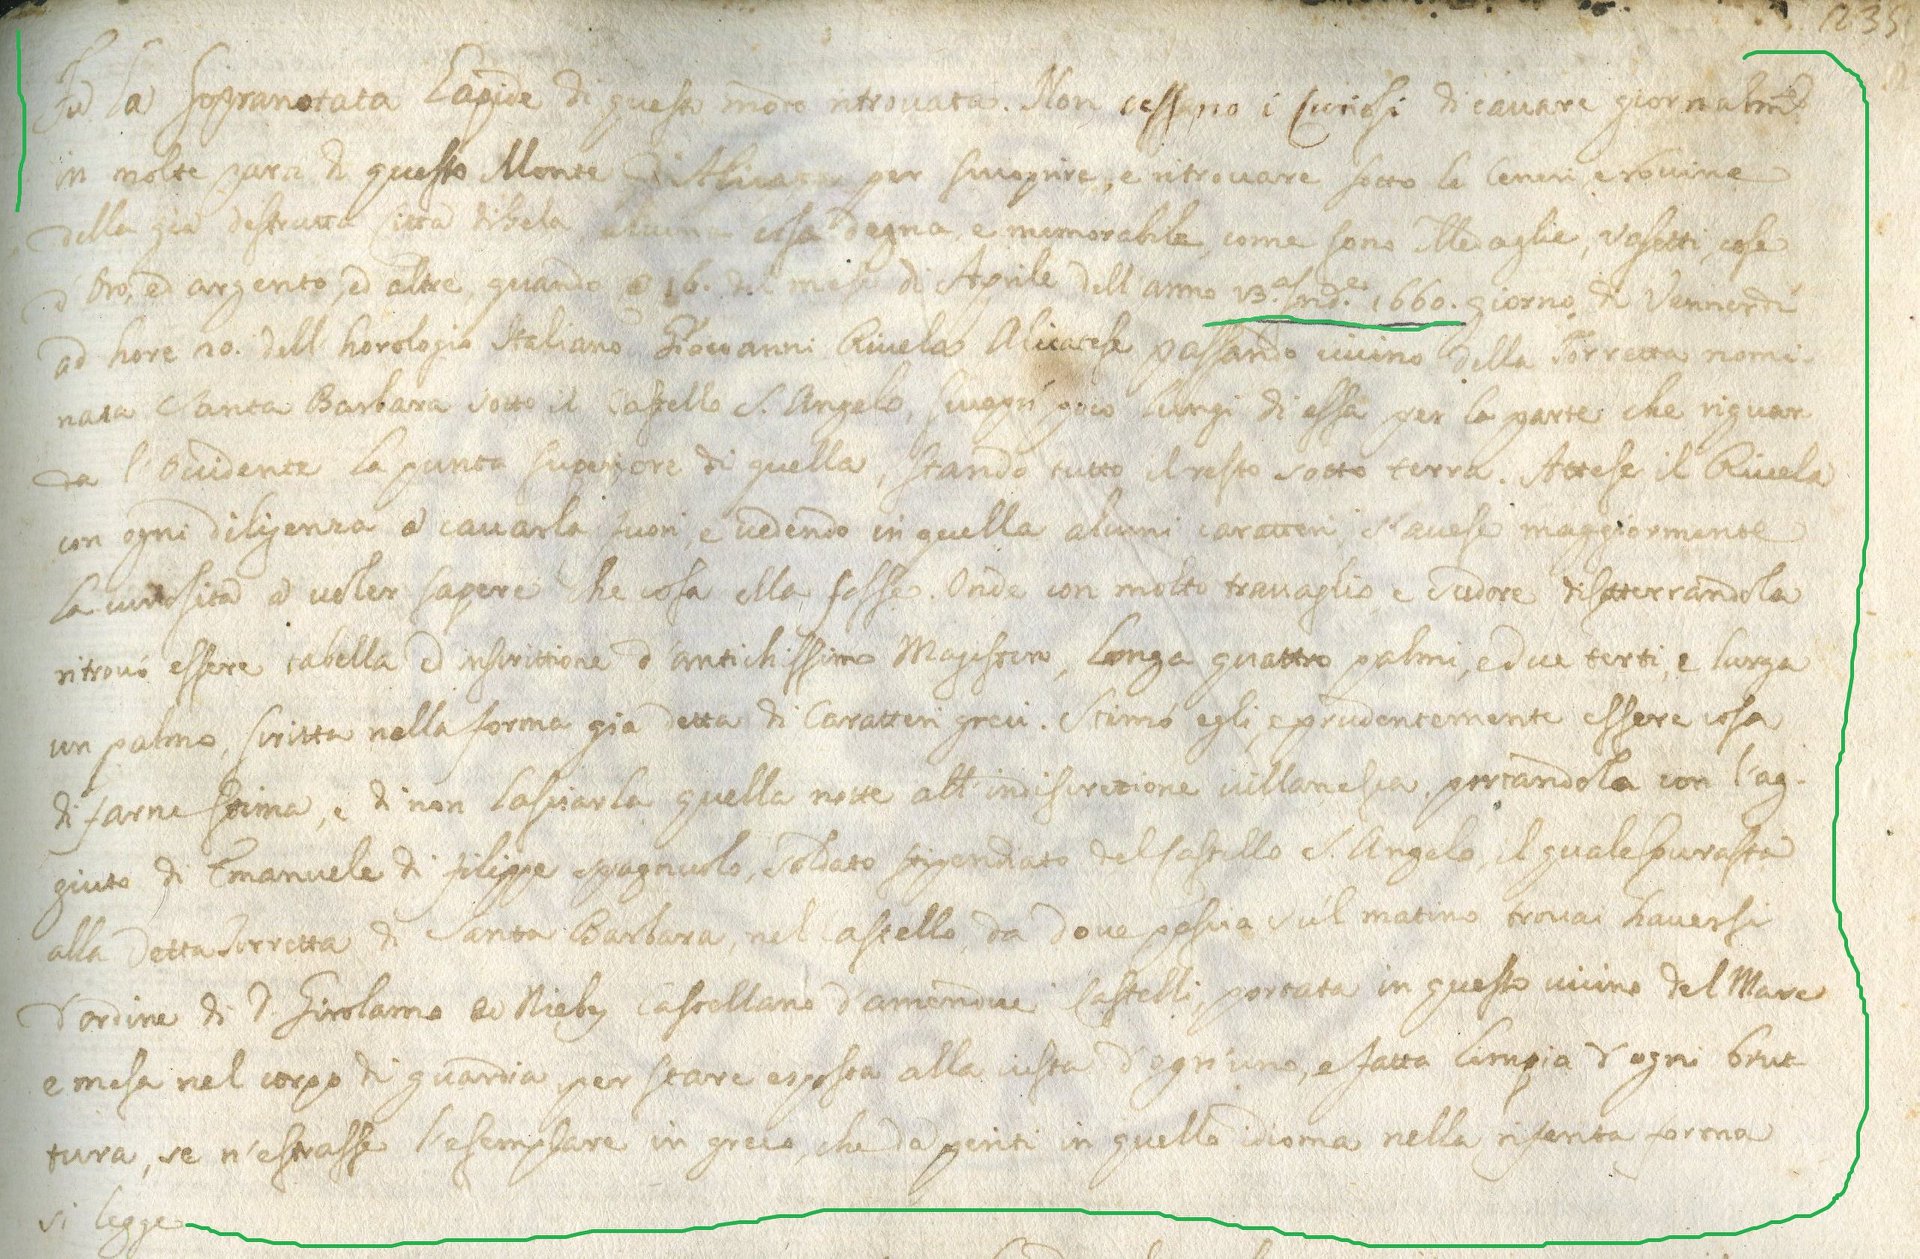 235
Fu la sopranotata Lapide di questa modo ritrovata. Non cessano i Curiosi di cavare giornalmte
in molte parti di questo Monte di Alicata per scuoprire, e ritrovare sotto le Ceneri e rovine
della già destrutta Città di Gela, alcuna cosa degna, e memorabile, come sono Medaglie, vasetti, cose
d'Oro, ed argento, ed altre, quando a 16. del mese di Aprile dell'anno 13.a Ind.e 1660. giorno di Vennerdì
ad hore 20. dell'horologio Italiano Giovanni Rivela Alicatese passando vicino della Torretta nomi-
nata Santa Barbara sotto il Castello S. Angelo, poco lungi di essa per la parte che riguar
da l'Occidente la punta superiore di quella, stando tutto il resto sotto terra. Attese il Rivela
con ogni diligenza à cavarla fuori, e vedendo in quella alcuni caratteri maggiormente
la curiosità à voler sapere che cosa ella fosse. Onde con molto travaglio e sudore disotterrandola
ritrovò essere tabella ed inscrittione d'antichissimo Magistero, Longa quattro palmi, e due terti, e larga
un palmo, scritta nella forma già detta di Caratteri greci. Stimò egli, e prudentemente essere cosa
di farne stima, e di non lasciarla quella notte all'indiscretione villanesca, portandola con l'ag-
giuto di Emanuele di Filippo spagnuolo, soldato stipendiato del Castello S. Angelo, il quale
alla detta Torretta di Santa Barbara, nel Castello, da dove poscia sul matino trovai haversi
d'ordine di D. Girolamo Castellano d'amendue Castelli, portata in questo vicino del Mare
e mesa nel corpo di guardia, per stare esposta alla vista d'ogn'uno, e fatta limpia d'ogni brut
tura, se n'estrasse l'esemplare in greco, che da periti in quello idioma nella forma
si legge